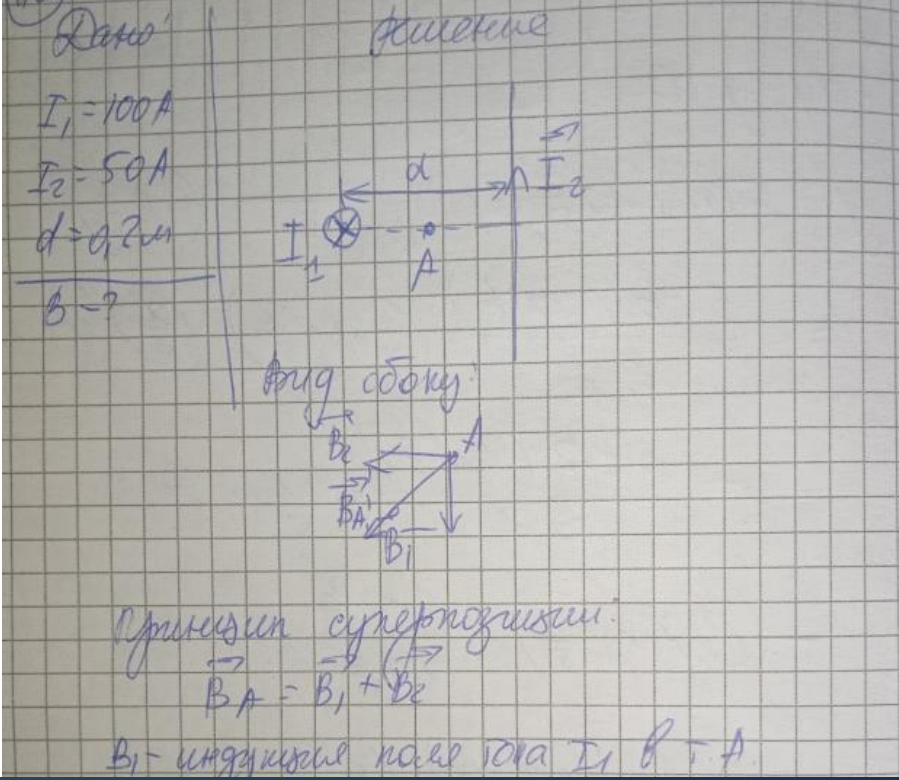 Дано:
Решение
I₁ = 100А
I₂ = 50А
d = 0,2м
B - ?
d
I₂
I₁
A
Вид сбоку:
B₂
A
B_A
B₁
Принцип суперпозиции:
B_A = B₁ + B₂
B₁ - индукция поля тока I₁ в т. А.